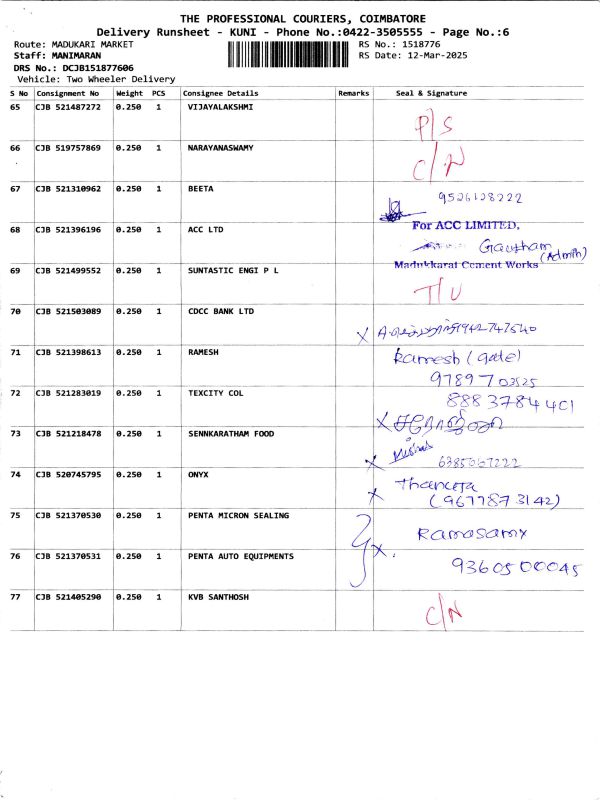 THE PROFESSIONAL COURIERS, COIMBATORE
Delivery Runsheet - KUNI - Phone No.:0422-3505555 - Page No.:6
Route: MADUKARI MARKET RS No.: 1518776
Staff: MANIMARAN RS Date: 12-Mar-2025
DRS No.: DCJB151877606
Vehicle: Two Wheeler Delivery
S No Consignment No Weight PCS Consignee Details Remarks Seal & Signature
65 CJB 521487272 0.250 1 VIJAYALAKSHMI P/S
66 CJB 519757869 0.250 1 NARAYANASWAMY C/N
67 CJB 521310962 0.250 1 BEETA 9526128222
68 CJB 521396196 0.250 1 ACC LTD For ACC LIMITED,
Gautham (Admin)
Madukkarai Cement Works
69 CJB 521499552 0.250 1 SUNTASTIC ENGI P L T/U
70 CJB 521503089 0.250 1 CDCC BANK LTD X
71 CJB 521398613 0.250 1 RAMESH Ramesh (gate)
9789703525
72 CJB 521283019 0.250 1 TEXCITY COL 8883784401
X
73 CJB 521218478 0.250 1 SENNKARATHAM FOOD
X 6385067222
74 CJB 520745795 0.250 1 ONYX X
(9677873142)
75 CJB 521370530 0.250 1 PENTA MICRON SEALING Ramasamy
76 CJB 521370531 0.250 1 PENTA AUTO EQUIPMENTS X. 9360500045
77 CJB 521405290 0.250 1 KVB SANTHOSH C/N